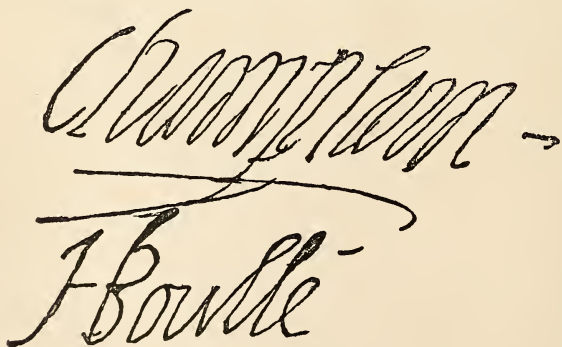 Champlain
HBoullé